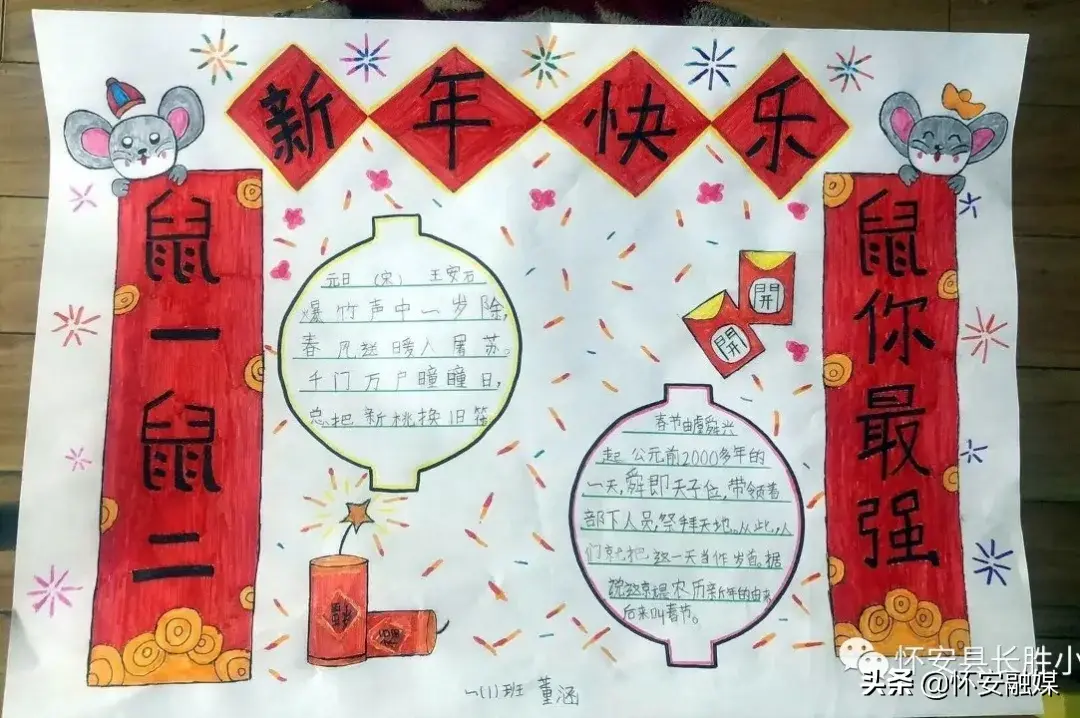 新年快乐
鼠一鼠二
鼠你最强
元日 (宋) 王安石
爆竹声中一岁除,
春风送暖入屠苏。
千门万户曈曈日,
总把新桃换旧符
開
開
春节由虞舜兴
起 公元前2000多年的
一天,舜即天子位,带领着
部下人员,祭拜天地。从此,人
们就把这一天当作岁首。据
说这就是农历新年的由来
后来叫春节。
福
一(1)班 董涵
怀安县长胜小
头条 @怀安融媒